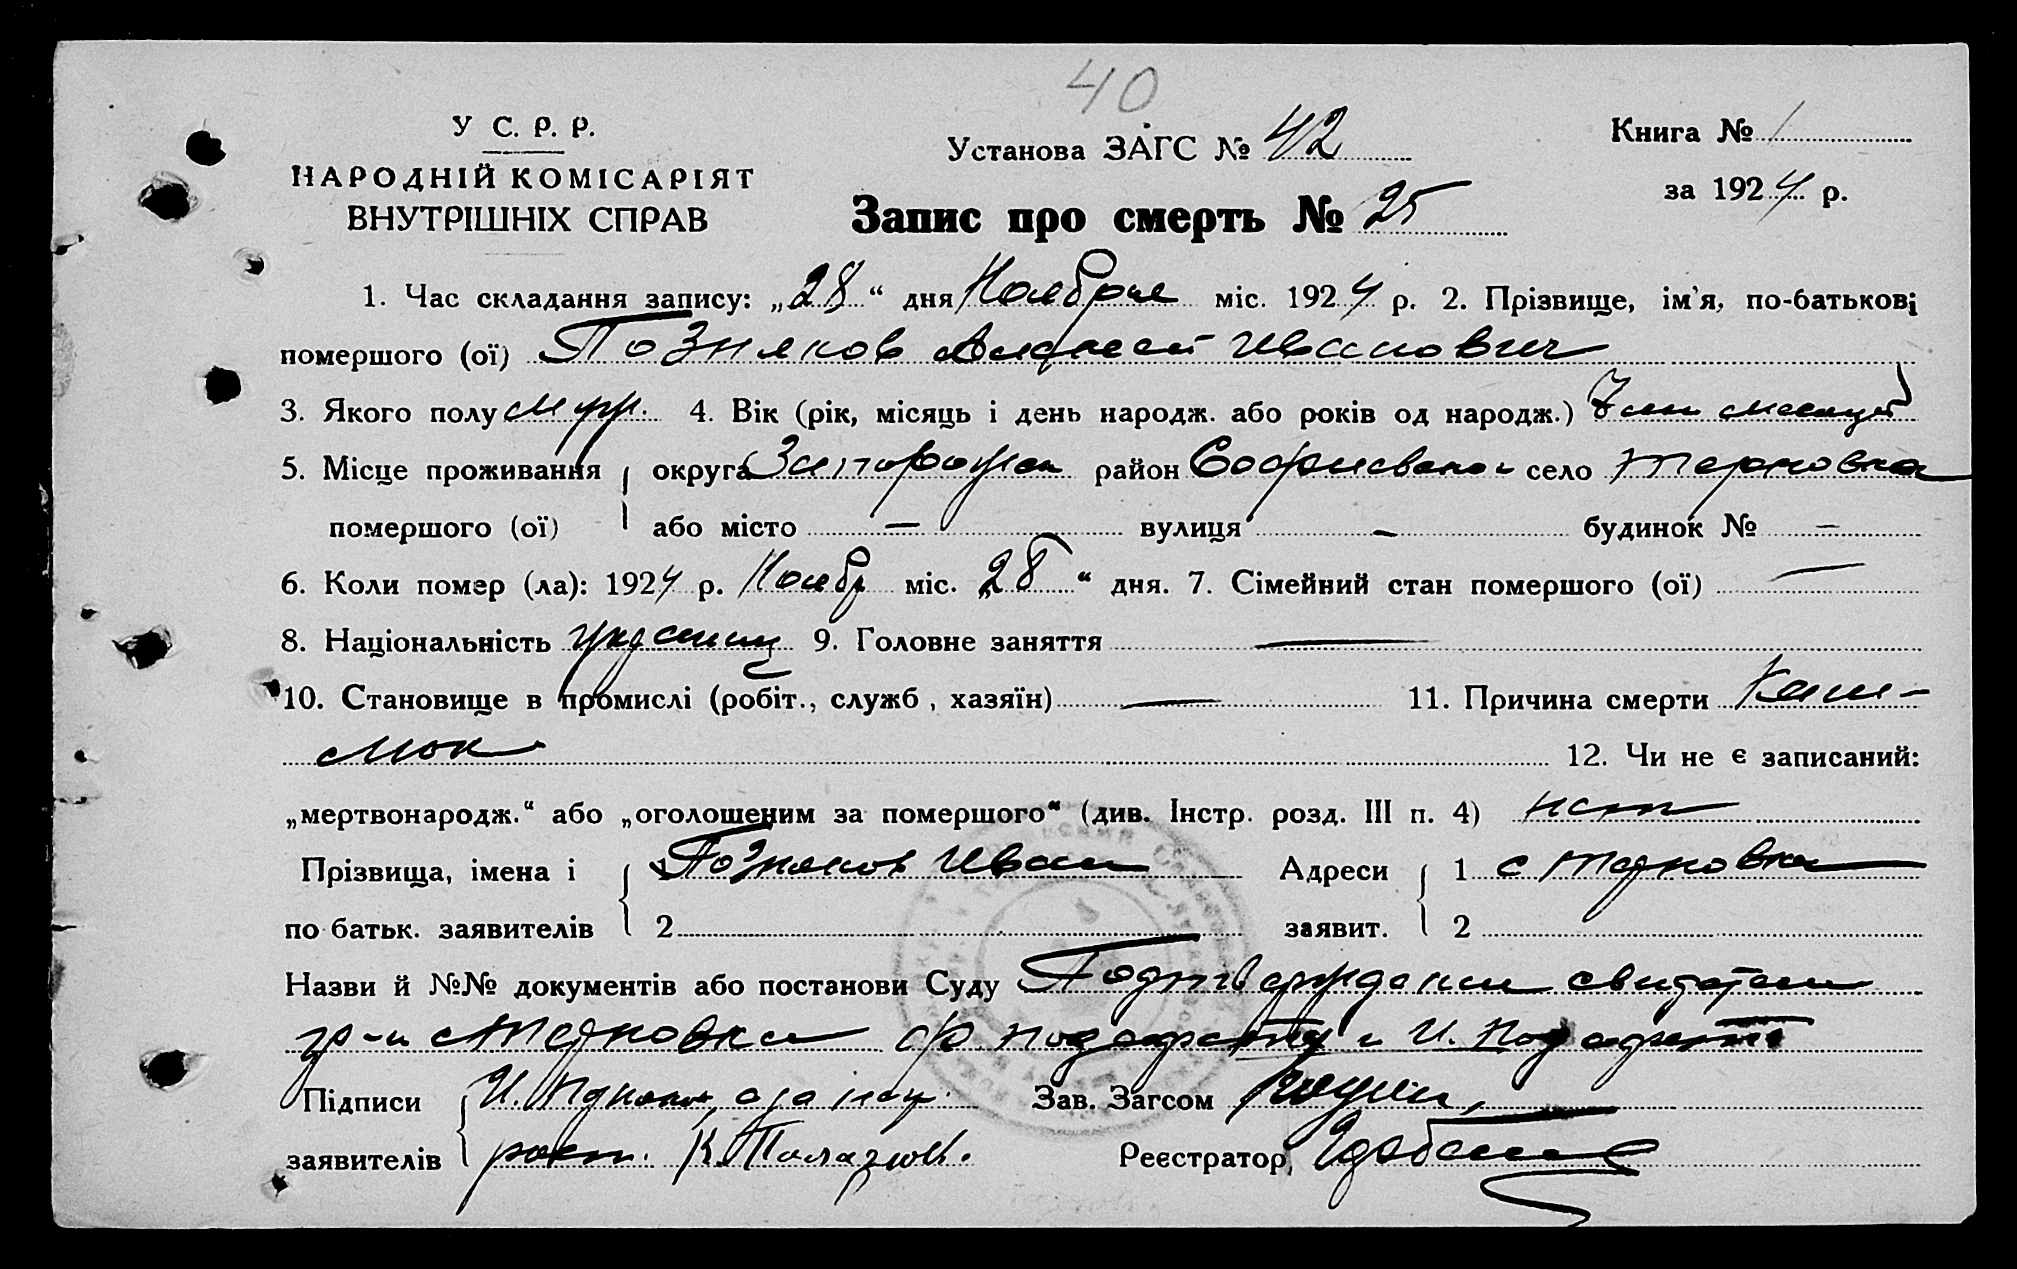 40
У С. Р. Р.
НАРОДНІЙ КОМІСАРІЯТ
ВНУТРІШНІХ СПРАВ
Установа ЗАГС № 42
Запис про смерть № 25
Книга № 1
за 1924 р.
1. Час складання запису: „28“ дня Ноября міс. 1924 р. 2. Прізвище, ім'я, по-батькові
помершого (ої) Позняков Андрей Иванович
3. Якого полу муж. 4. Вік (рік, місяць і день народж. або років од народж.) 7 месяцей
5. Місце проживання округа Запорожск район Софиевско село Терновка
помершого (ої) або місто — вулиця — будинок № —
6. Коли помер (ла): 1924 р. Ноябр міс. „28“ дня. 7. Сімейний стан помершого (ої) —
8. Національність украинец 9. Головне заняття —
10. Становище в промислі (робіт., служб, хазяїн) — 11. Причина смерти Каш-
люк 12. Чи не є записаний:
„мертвонародж.“ або „оголошеним за помершого“ (див. Інстр. розд. III п. 4) нет
Прізвища, імена і 1 Позняков Иван Адреси 1 с Терновка
по батьк. заявителів 2 заявит. 2
Назви й №№ документів або постанови Суду Подтверждении свидетели
гр-н с Терновка и И.
Підписи И. Зав. Загсом
заявителів К. Реєстратор